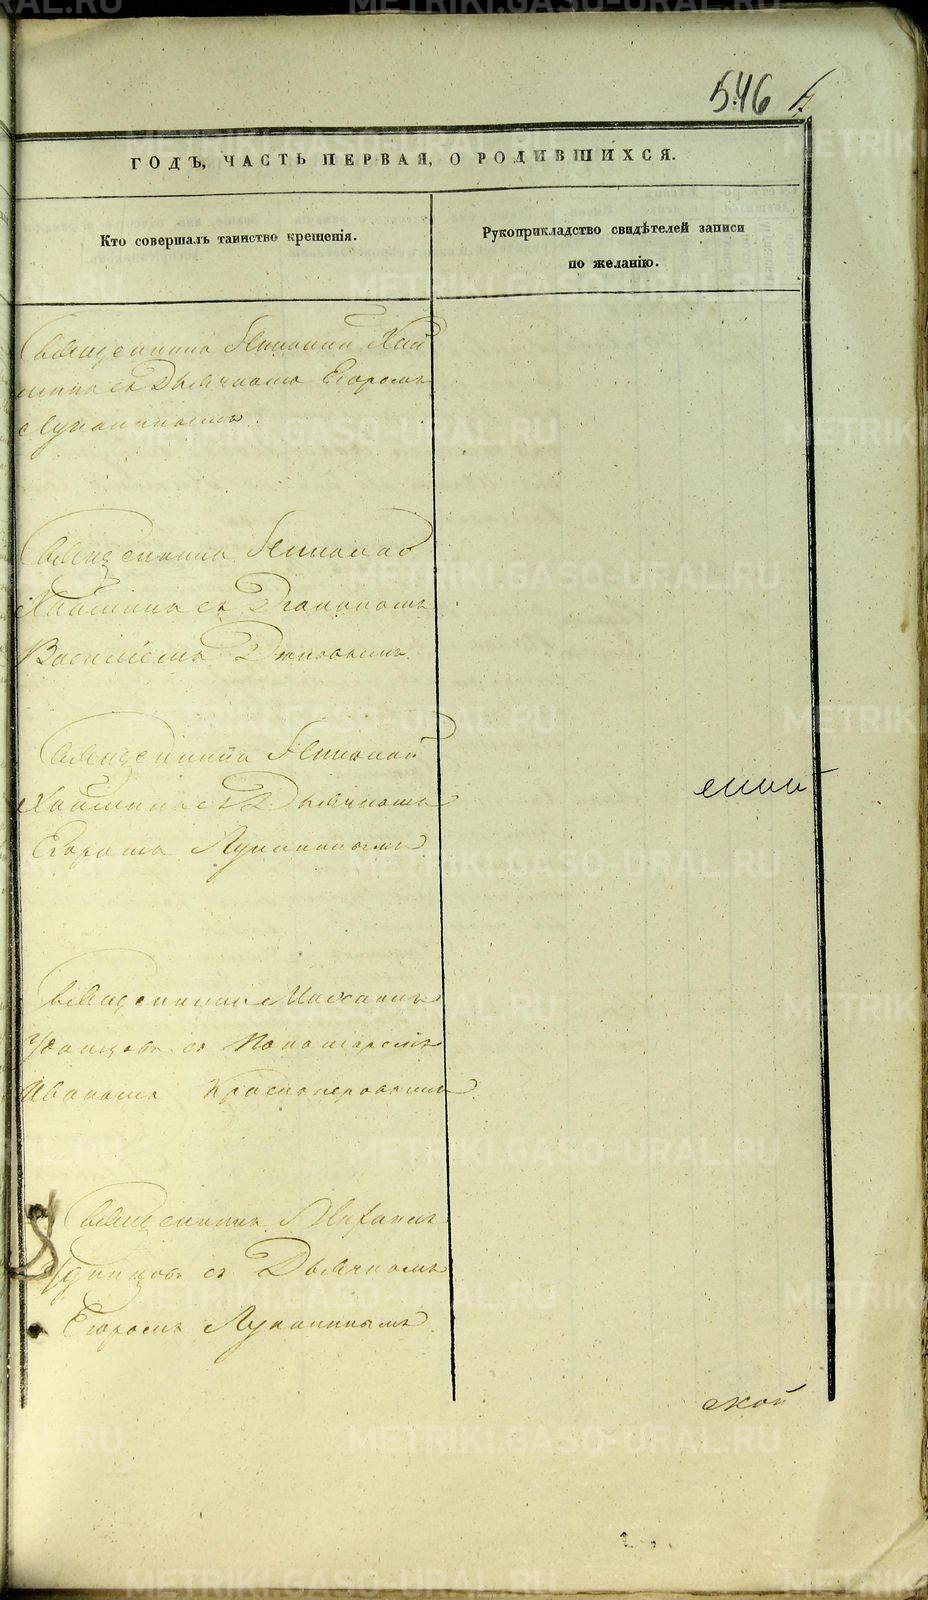 546
ГОДЪ, ЧАСТЬ ПЕРВАЯ, О РОДИВШИХСЯ.
Кто совершалъ таинство крещенія.
Рукоприкладство свидѣтелей записи
по желанію.
Священникъ Николай Хай
минъ съ Дьячкомъ Егоромъ
Лукан
Священникъ Николай
Хайминъ съ Діакономъ
Василіемъ
Священникъ Николай
Хайминъ съ Дьячкомъ
Егоромъ Луканинымъ
Священникъ Михаилъ
Удинцовъ съ Пономаремъ
Иваномъ Красноперовымъ.
Священникъ Михаилъ
Удинцовъ съ Дьячкомъ
Егоромъ Луканинымъ.
ской
METRIKI.GASO-URAL.RU